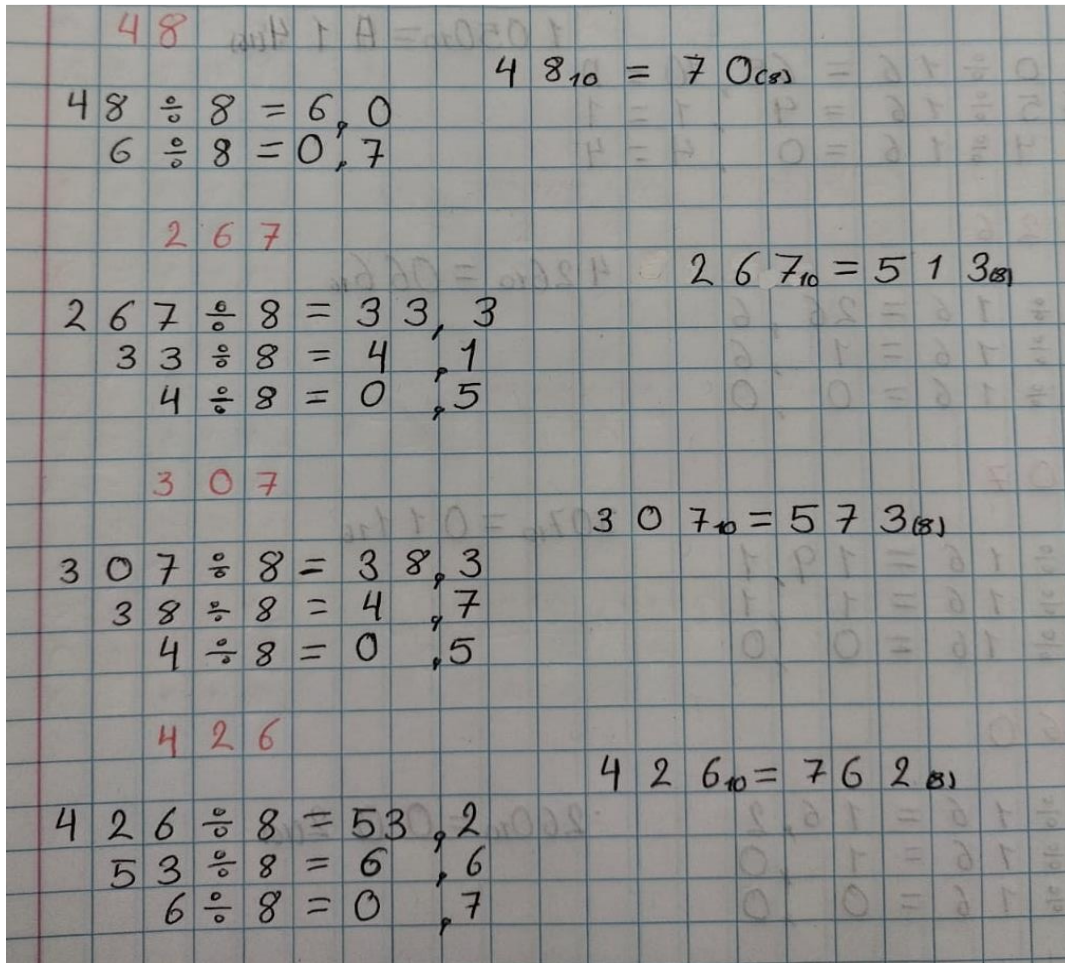 48
48₁₀ = 70₍₈₎
48 ÷ 8 = 6,0
6 ÷ 8 = 0,7
267
267₁₀ = 513₍₈₎
267 ÷ 8 = 33,3
33 ÷ 8 = 4,1
4 ÷ 8 = 0,5
307
307₁₀ = 573₍₈₎
307 ÷ 8 = 38,3
38 ÷ 8 = 4,7
4 ÷ 8 = 0,5
426
426₁₀ = 762₍₈₎
426 ÷ 8 = 53,2
53 ÷ 8 = 6,6
6 ÷ 8 = 0,7